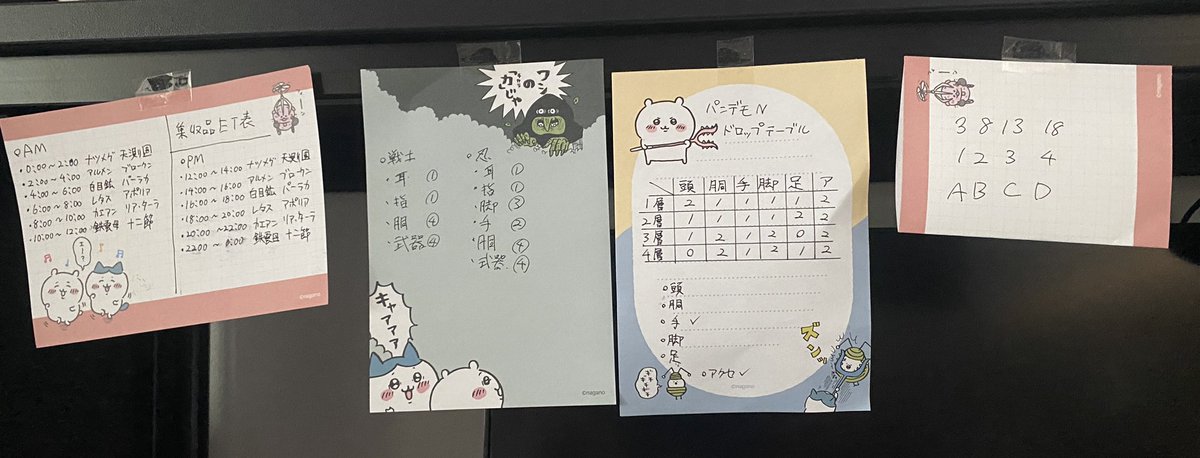 集収品ET表
○AM
・0:00〜2:00 ナツメグ 天測園
・2:00〜4:00 アルメン ブロークン
・4:00〜6:00 白目鉱 パーラカ
・6:00〜8:00 レタス アポリア
・8:00〜10:00 カエアン リア・ターラ
・10:00〜12:00 鉄雲母 十二節
○PM
・12:00〜14:00 ナツメグ 天測園
・14:00〜16:00 アルメン ブロークン
・16:00〜18:00 白目鉱 パーラカ
・18:00〜20:00 レタス アポリア
・20:00〜22:00 カエアン リア・ターラ
・22:00〜0:00 鉄雲母 十二節
エーッ?
©nagano
ワシ
の
だじゃ
○戦士
・耳 ①
・指 ①
・胴 ④
・武器④
○忍
・耳 ①
・指 ①
・脚 ③
・手 ②
・胴 ④
・武器④
キャアアア
©nagano
パンデモN
ドロップテーブル
頭 胴 手 脚 足 ア
1層 2 1 1 1 1 2
2層 1 1 1 1 2 2
3層 1 2 1 2 0 2
4層 0 2 1 2 1 2
○頭
○胴
○手 ✓
○脚
○足
○アクセ ✓
ズンッ
©nagano
3 8 13 18
1 2 3 4
A B C D